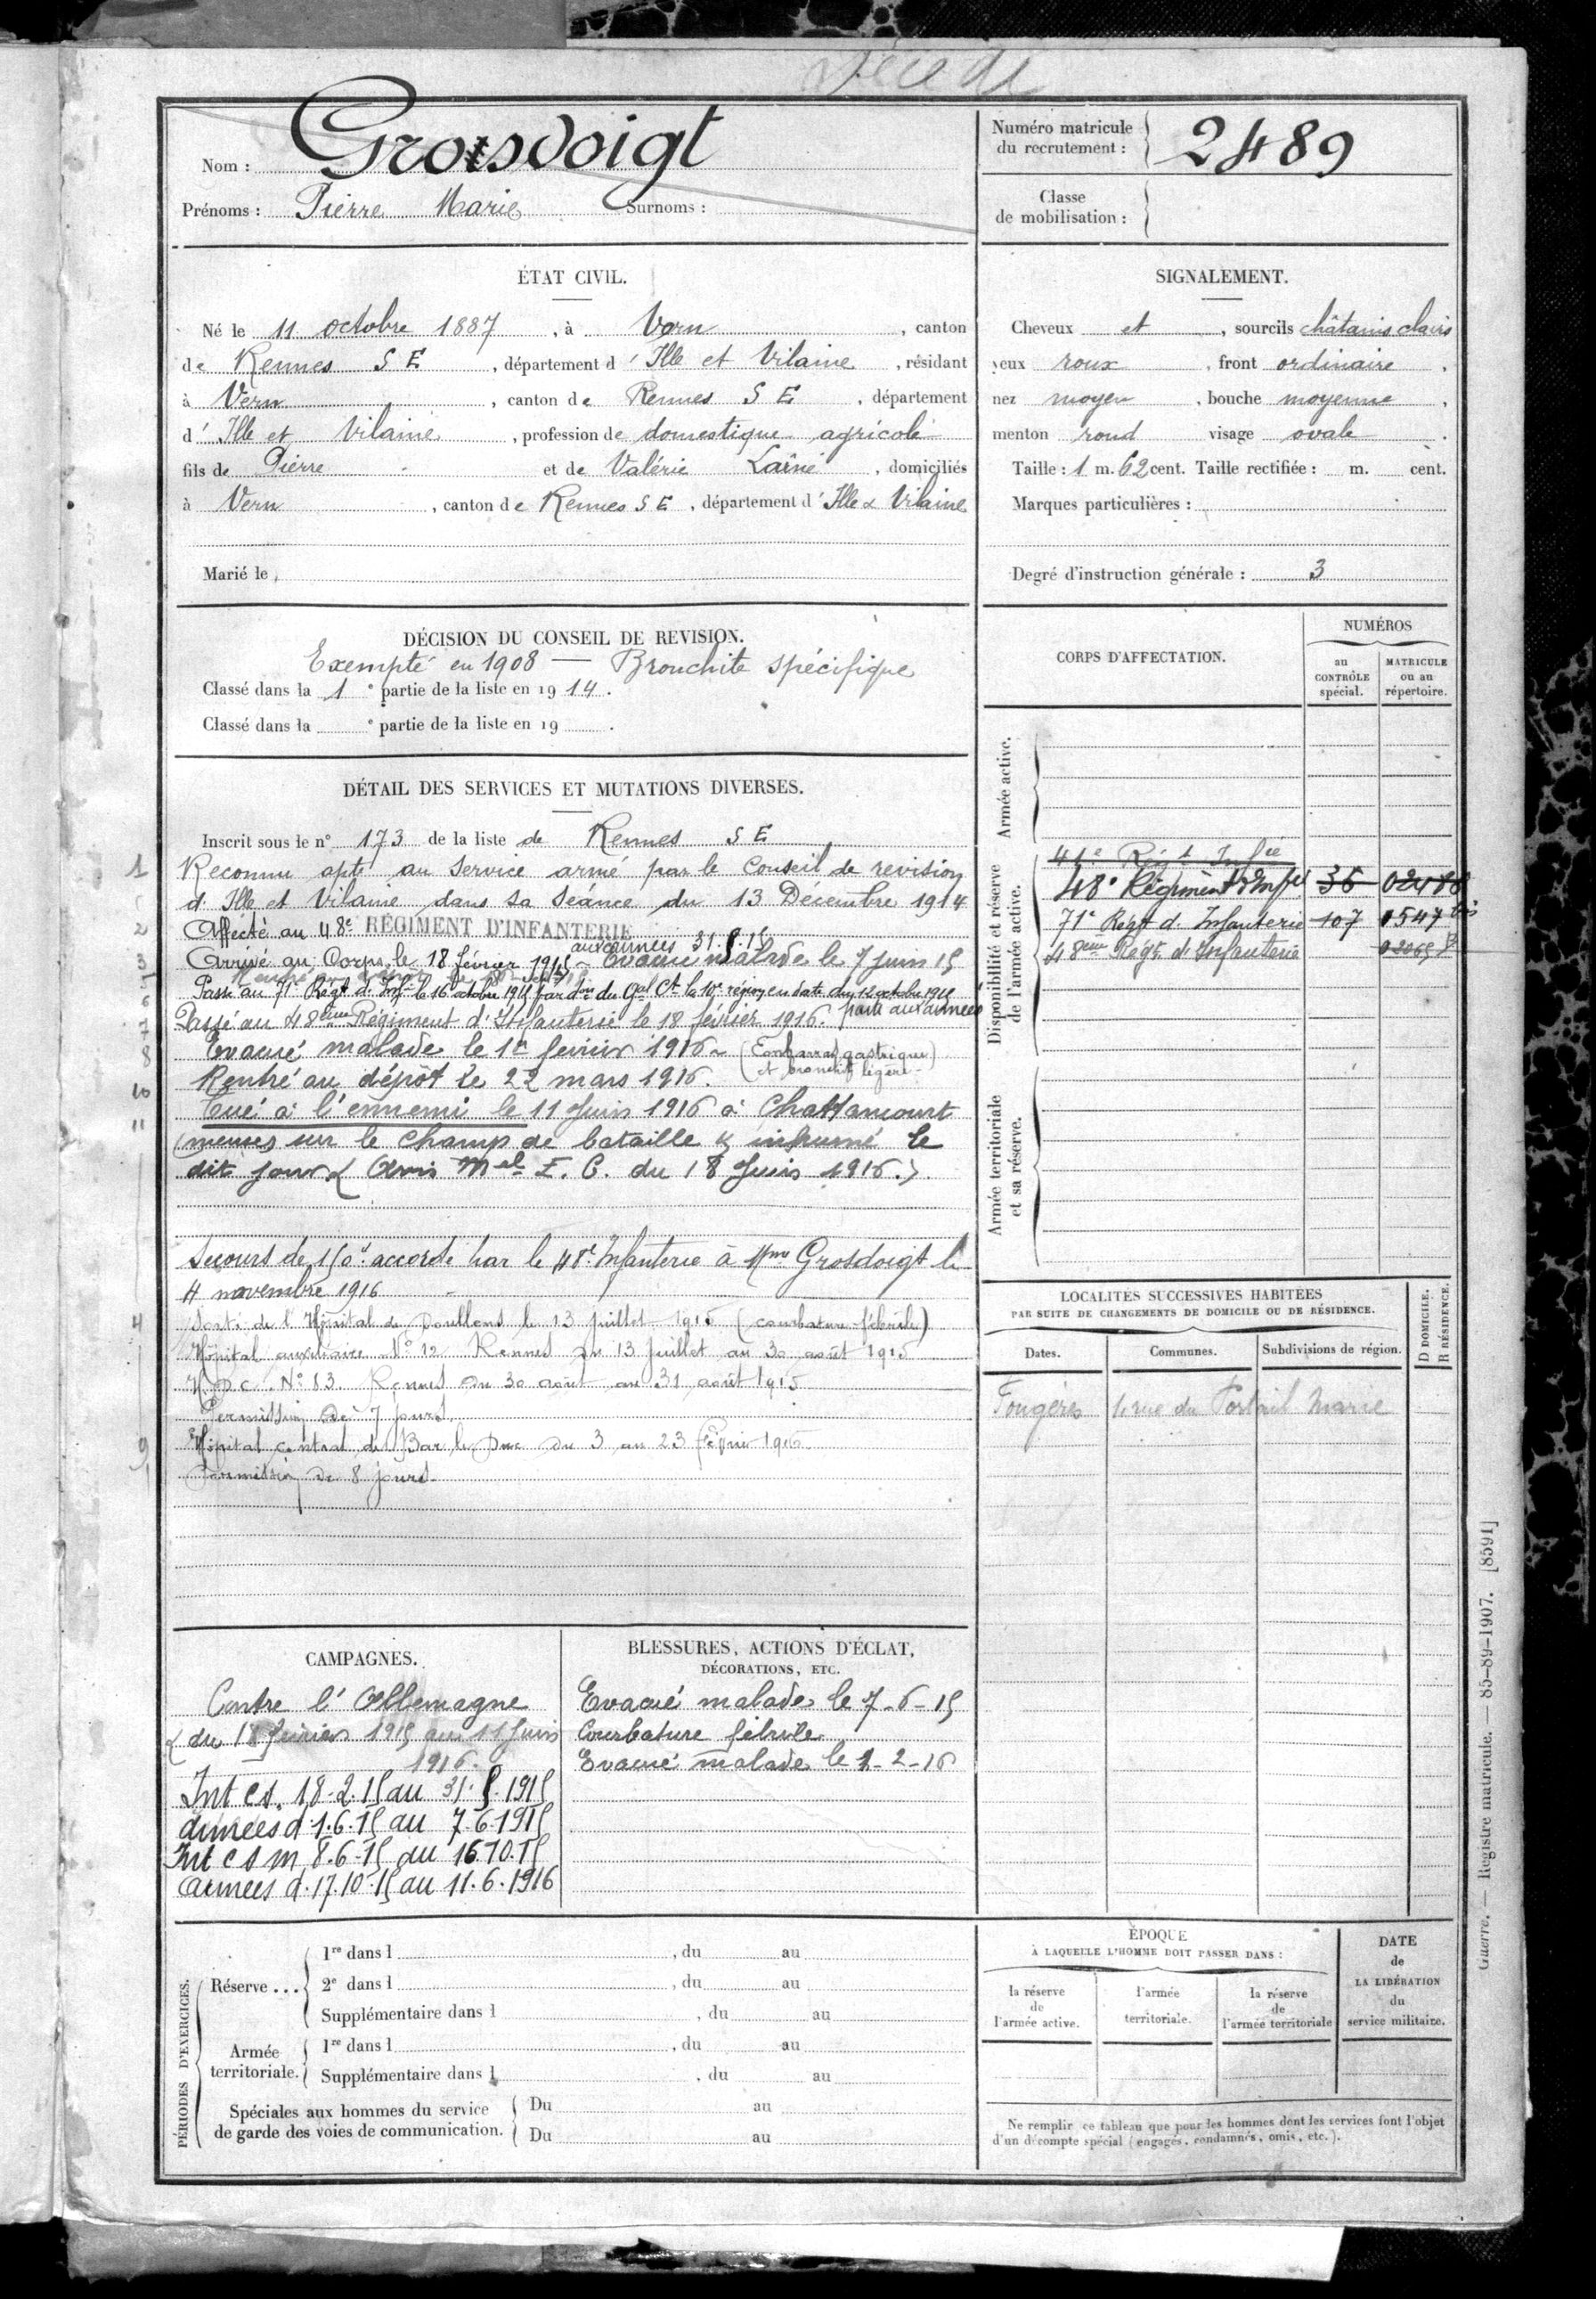 Décédé
Nom : Grosdoigt
Prénoms : Pierre Marie Surnoms :
Numéro matricule du recrutement : 2489
Classe de mobilisation :
ÉTAT CIVIL.
Né le 11 octobre 1887, à Vern, canton
de Rennes S E, département d'Ille et Vilaine, résidant
à Vern, canton de Rennes S E, département
d'Ille et Vilaine, profession de domestique agricole
fils de Pierre et de Valérie Lainé, domiciliés
à Vern, canton de Rennes S E, département d'Ille & Vilaine
Marié le
SIGNALEMENT.
Cheveux et, sourcils châtains clairs
yeux roux, front ordinaire,
nez moyen, bouche moyenne,
menton rond visage ovale.
Taille : 1 m. 62 cent. Taille rectifiée : m. cent.
Marques particulières :
Degré d'instruction générale : 3
DÉCISION DU CONSEIL DE REVISION.
Exempté en 1908 — Bronchite spécifique
Classé dans la 1e partie de la liste en 1914.
Classé dans la e partie de la liste en 19 .
DÉTAIL DES SERVICES ET MUTATIONS DIVERSES.
Inscrit sous le n° 173 de la liste de Rennes S E
Reconnu apte au service armé par le Conseil de revision
d'Ille et Vilaine dans sa séance du 13 Décembre 1914
Affecté au 48e RÉGIMENT D'INFANTERIE
aux armées 31.5.15
Arrivé au Corps le 18 février 1915 - Evacué malade le 7 juin 15
Passé au 71e Régt d'Infie le 16 octobre 1915 par don du Gal Ct la 10e région en date du 12 octobre 1915
Passé au 48ème Régiment d'Infanterie le 18 février 1916. parti aux armées
Evacué malade le 1er février 1916 - (Embarras gastrique et bronchite légère -)
Rentré au dépôt le 22 mars 1916.
Tué à l'ennemi le 11 Juin 1916 à Chattancourt
(meuse) sur le champ de bataille & inhumé le
dit jour (Avis Mel E. C. du 18 Juin 1916.)
Secours de 150f accordé par le 48e Infanterie à Mme Grosdoigt le
4 novembre 1916
Sorti de l'Hôpital de Doullens le 13 juillet 1915 (courbature fébrile)
Hôpital auxiliaire N° 12 Rennes du 13 juillet au 30 août 1915
H. D. C. N° 83. Rennes du 30 août au 31 août 1915
Permission de 7 jours
Hôpital central de Bar le Duc du 3 au 23 Février 1916.
Permission de 8 jours.
CORPS D'AFFECTATION.
NUMÉROS
au CONTRÔLE spécial.
MATRICULE ou au répertoire.
Armée active.
Disponibilité et réserve de l'armée active.
41e Régt Infie
48e Régiment d'Infie 36 02488
71e Régt d'Infanterie 107 0547 bis
48ème Régt d'Infanterie
Armée territoriale et sa réserve.
LOCALITÉS SUCCESSIVES HABITÉES
PAR SUITE DE CHANGEMENTS DE DOMICILE OU DE RÉSIDENCE.
Dates. Communes. Subdivisions de région. D DOMICILE. R RÉSIDENCE.
Fougères rue du Portail Marie
CAMPAGNES.
Contre l'Allemagne
du 18 février 1915 au 11 Juin
1916.
Int cs. 18-2.15 au 31.5.1915
armées d. 1.6.15 au 7.6.1915
Int c s m 8.6-15 au 16.10.15
armées d. 17.10.15 au 11.6.1916
BLESSURES, ACTIONS D'ÉCLAT,
DÉCORATIONS, ETC.
Evacué malade le 7-6-15
Courbature fébrile
Evacué malade le 1-2-16
PÉRIODES D'EXERCICES.
Réserve...
1re dans l , du au
2e dans l , du au
Supplémentaire dans l , du au
Armée territoriale.
1re dans l , du au
Supplémentaire dans l , du au
Spéciales aux hommes du service de garde des voies de communication.
Du au
Du au
ÉPOQUE
À LAQUELLE L'HOMME DOIT PASSER DANS :
la réserve de l'armée active.
l'armée territoriale.
la réserve de l'armée territoriale
DATE de LA LIBÉRATION du service militaire.
Ne remplir ce tableau que pour les hommes dont les services font l'objet
d'un décompte spécial (engagés, condamnés, omis, etc.).
Guerre. — Registre matricule. — 85-89-1907. [8591]